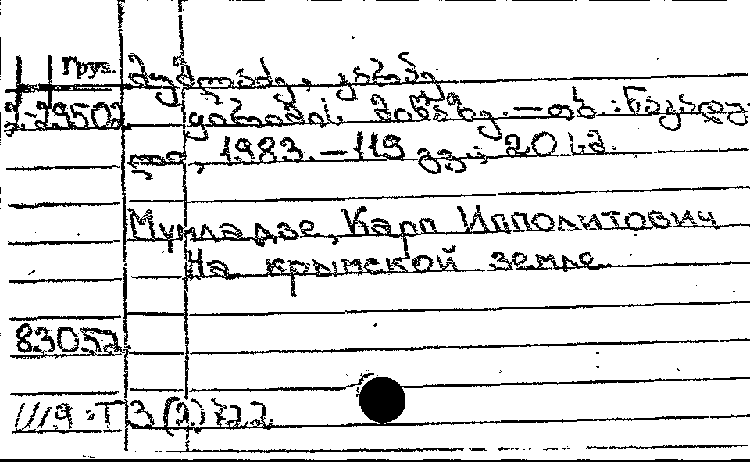 Груз. მუმლაძე, კარპე
2.-29502 ყირიმის მიწაზე. — თბ. : ნაკადუ-
ლი, 1983. — 119 გვ.; 20 სმ.
Мумладзе, Карп Ипполитович
На крымской земле
83052
Т3(2)722